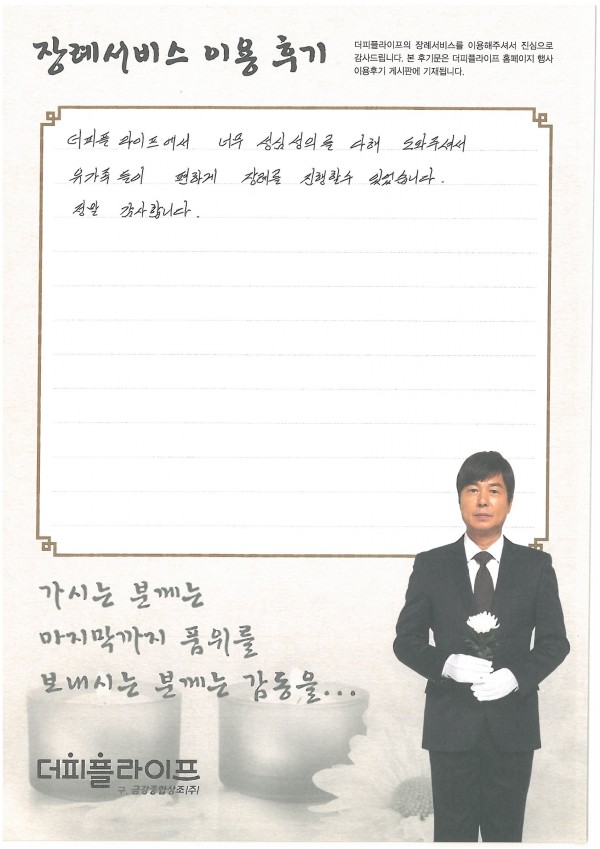 장례서비스 이용 후기
더피플라이프의 장례서비스를 이용해주셔서 진심으로
감사드립니다. 본 후기문은 더피플라이프 홈페이지 행사
이용후기 게시판에 기재됩니다.
더피플 라이프에서 너무 성심성의를 다해 도와주셔서
유가족들이 편하게 장례를 진행할수 있었습니다.
정말 감사합니다.
가시는 분께는
마지막까지 품위를
보내시는 분께는 감동을...
더피플라이프
구. 금강종합상조(주)